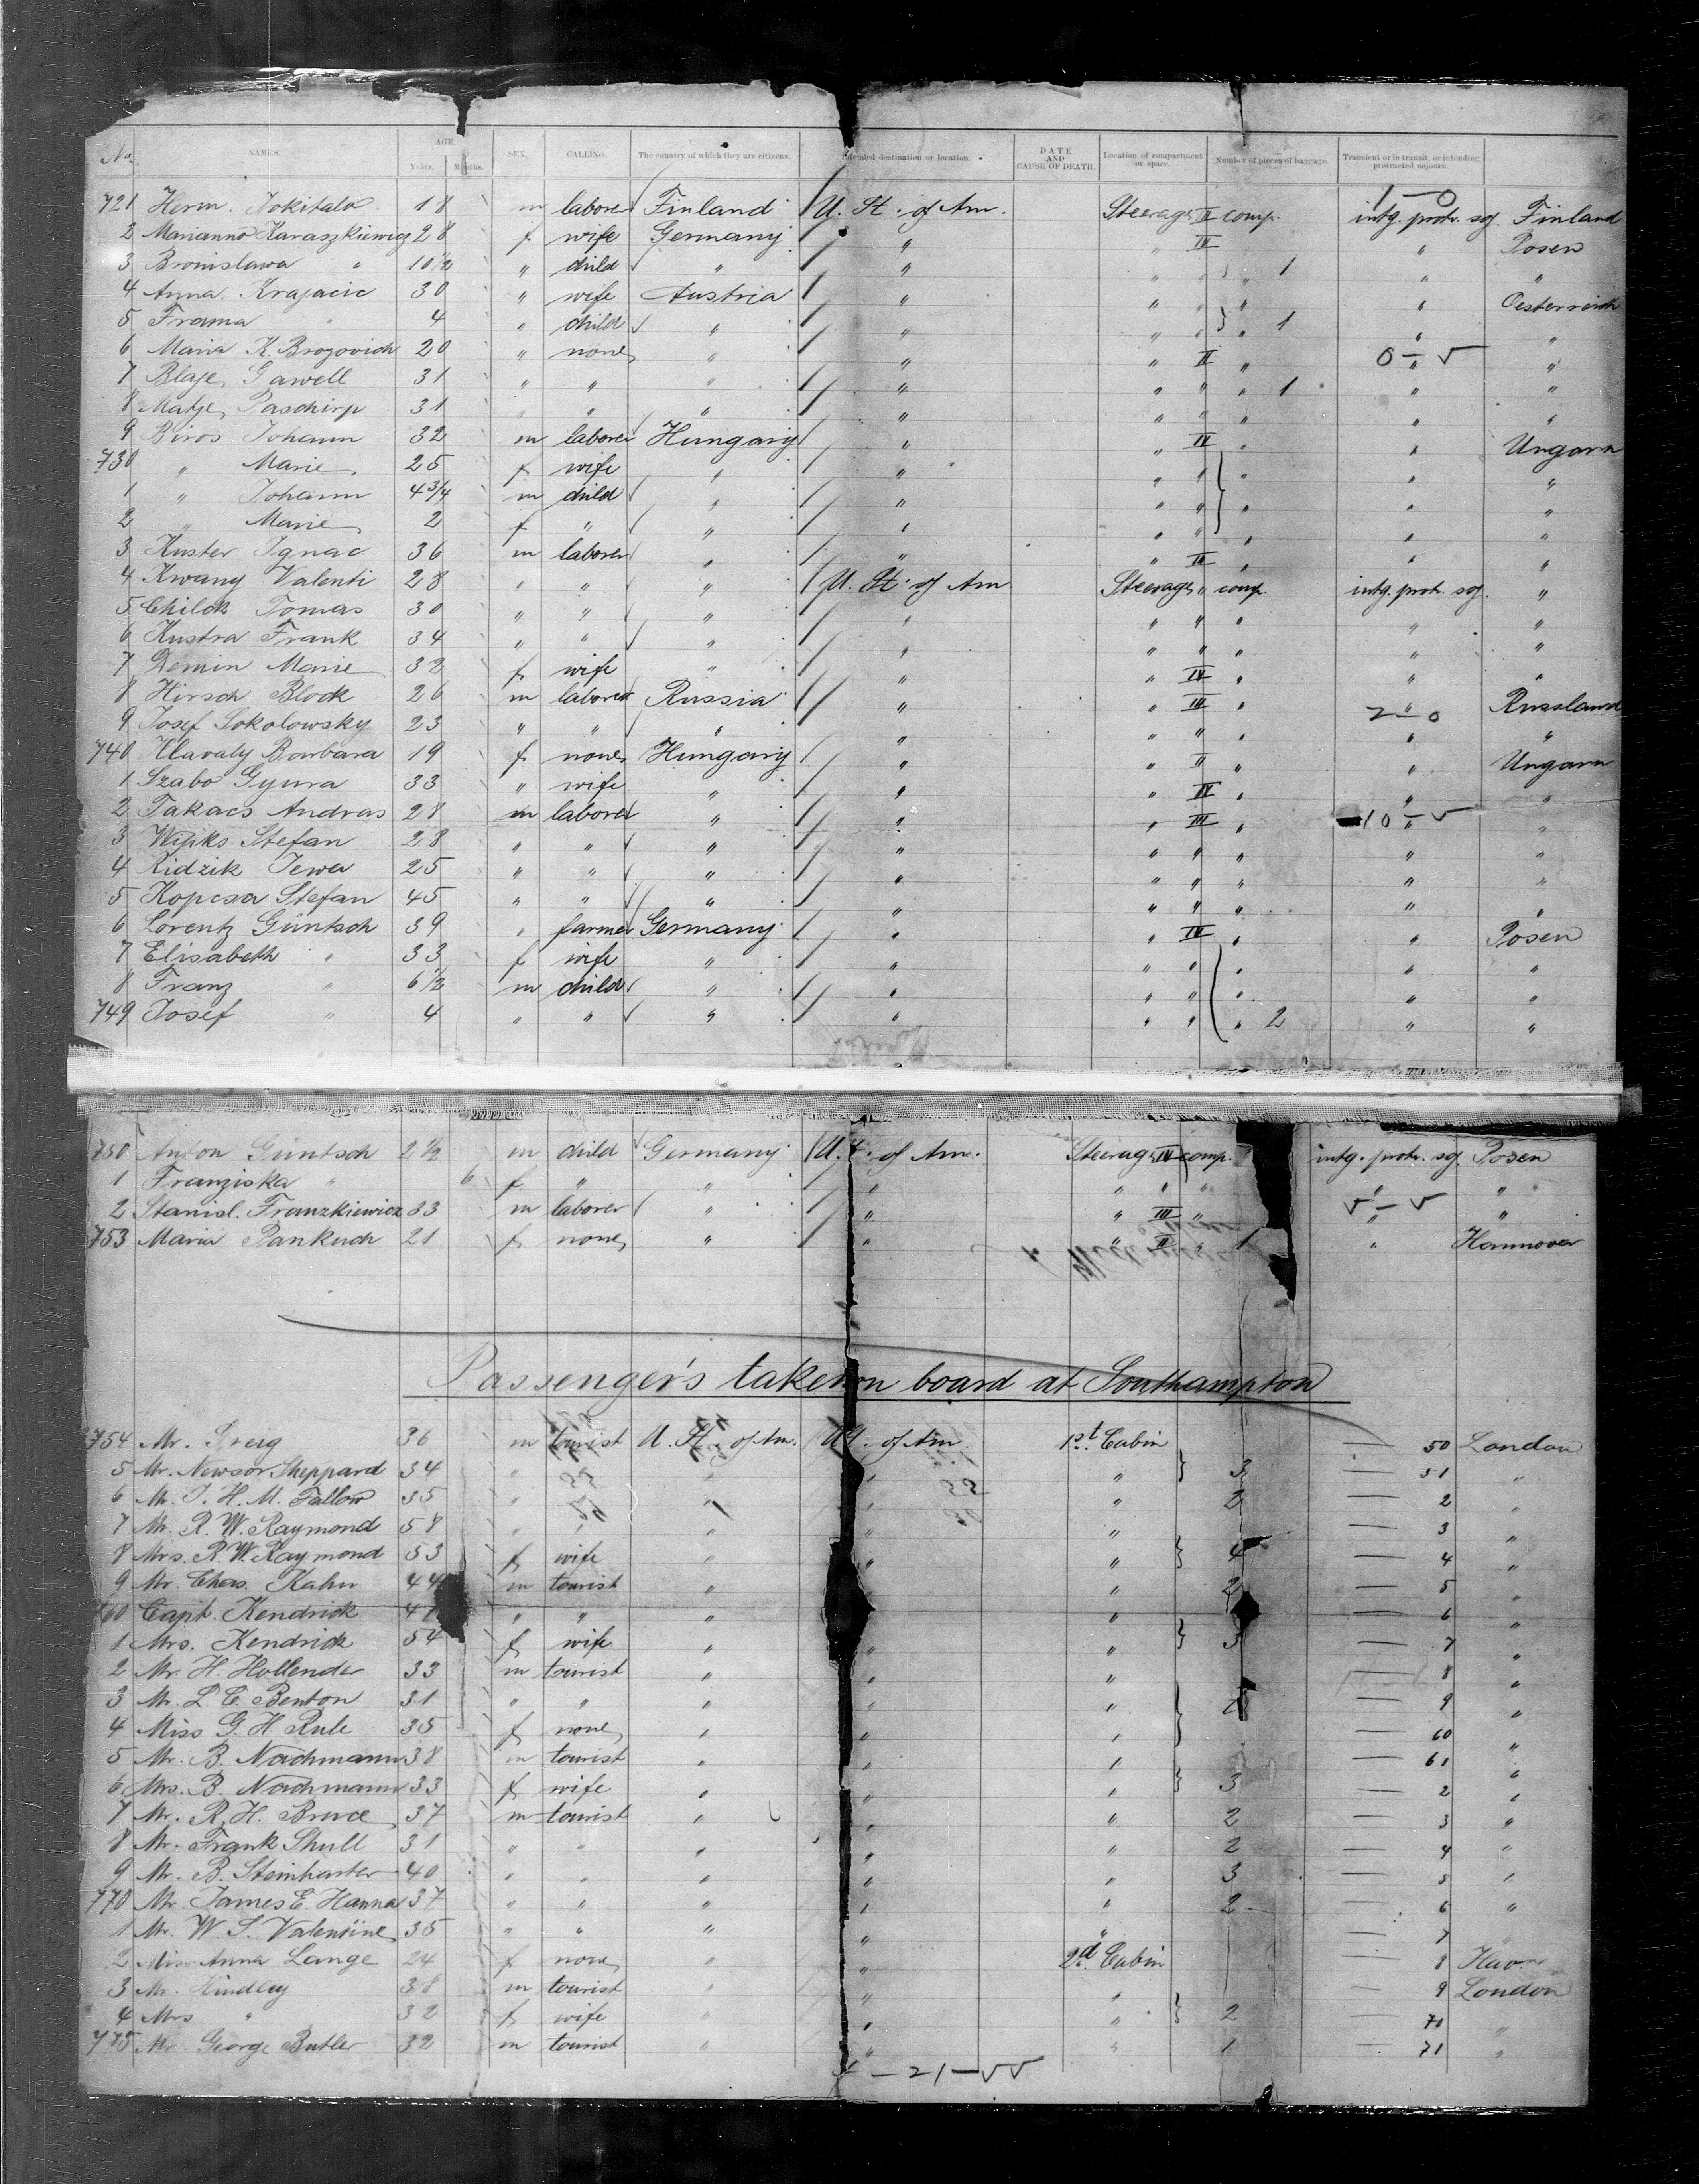 No. NAMES. AGE. Years. Months. SEX. CALLING. The country of which they are citizens. Intended destination or location. DATE AND CAUSE OF DEATH Location of compartment or space. Number of pieces of baggage. Transient or in transit, or intending protracted sojourn.
721 Herm. Jokitalo 18 m laborer Finland U. St. of Am. Steerage II comp. intg. protr. soj. Finland
2 Marianna Karaszkiewicz 28 f wife Germany " " III " Posen
3 Bronislawa " 10 1/2 " child " " " " " 1 " "
4 Anna Krajacic 30 " wife Austria " " " " " Oesterreich
5 Frama " 4 " child " " " " " 1 " "
6 Maria K. Brozovich 20 " none " " " II " 0 — "
7 Blaje Gawell 31 " " " " " " " 1 " "
8 Matje Paschirp 31 " " " " " " " " "
9 Biros Johann 32 m laborer Hungary " " IV " " Ungarn
730 " Marie 25 f wife " " " " " " "
1 " Johann 4 3/4 m child " " " " " " "
2 " Marie 2 f " " " " " " " "
3 Kuster Ignac 36 m laborer " " " III " " "
4 Kwany Valenti 28 " " " U. St. of Am. Steerage " comp. intg. protr. soj. "
5 Chilck Tomas 30 " " " " " " " " "
6 Kustra Frank 34 " " " " " " " " "
7 Demin Marie 32 f wife " " " IV " " "
8 Hirsch Block 26 m laborer Russia " " III " " Russland
2—0
9 Josef Sokolowsky 23 " " " " " " " " "
740 Hlavaly Barbara 19 f none Hungary " " II " " Ungarn
1 Szabo Gyura 33 " wife " " " IV " " "
2 Takacs Andras 28 m laborer " " " III " 10 — "
3 Wipks Stefan 28 " " " " " " " " "
4 Ridzik Jewa 25 " " " " " " " " "
5 Kopcsa Stefan 45 " " " " " " " " "
6 Lorentz Güntsch 39 " farmer Germany " " IV " " Posen
7 Elisabeth " 33 f wife " " " " " " "
8 Franz " 6 1/2 m child " " " " " " "
749 Josef " 4 " " " " " " " 2 " "
750 Anton Güntsch 2 1/2 m child Germany U. St. of Am. Steerage IV comp. intg. protr. soj. Posen
1 Franziska " 6 f " " " " " " " "
2 Stanisl. Franzkiewicz 33 m laborer " " " III " " "
753 Maria Pankuch 21 f none " " " II " 1 " Hannover
Passenger's taken on board at Southampton
754 Mr. Greig 36 m tourist U. St. of Am. U. St. of Am. 1st. Cabin — 50 London
5 Mr. Newsor Sheppard 34 " " " " 3 — 51 "
6 Mr. J. H. M. Fallow 35 " " " " 2 — 2 "
7 Mr. R. W. Raymond 58 " " " " " — 3 "
8 Mrs. R. W. Raymond 53 f wife " " " 4 — 4 "
9 Mr. Chas. Kahn 44 m tourist " " 2 — 5 "
760 Capt. Kendrick " " " " " — 6 "
1 Mrs. Kendrick 54 f wife " " " 3 — 7 "
2 Mr. H. Hollender 33 m tourist " " " — 8 "
3 Mr. L. C. Benton 31 " " " " " — 9 "
4 Miss G. H. Rule 35 f none " " " — 60 "
5 Mr. B. Nachmann 38 m tourist " " " — 61 "
6 Mrs. B. Nachmann 33 f wife " " " 3 — 2 "
7 Mr. R. H. Bruce 37 m tourist " " " 2 — 3 "
8 Mr. Frank Shull 31 " " " " " 2 — 4 "
9 Mr. B. Steinharter 40 " " " " " 3 — 5 "
770 Mr. James E. Hanna 37 " " " " " 2 — 6 "
1 Mr. W. S. Valentine 35 " " " " " — 7 "
2 Miss Anna Lange 24 f none " " 2d. Cabin — 8
3 Mr. Hindley 38 m tourist " " " — 9 London
4 Mrs " 32 f wife " " " 2 — 70 "
775 Mr George Butler 32 m tourist " " " 1 — 71 "
— 21 —